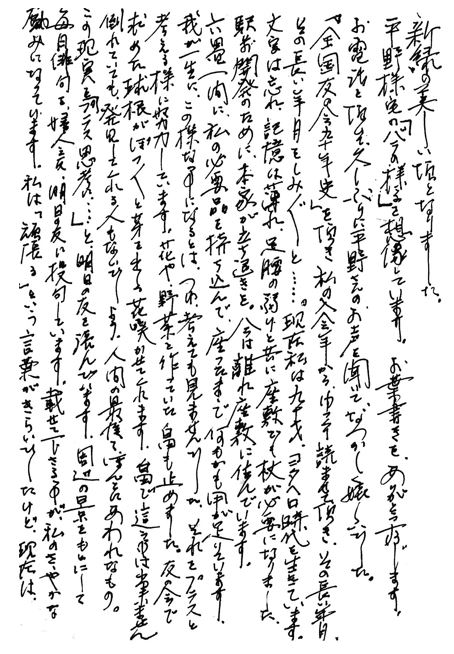 新緑の美しい頃となりました。
平野様宅の「心の様子」を想像しています。お葉書きを、ありがとう存じます。
お電話を頂き久しぶりに平野さんのお声を聞いてなつかし嬉しいでした。
『全国友の会九十年史』を頂き、私の入会年から、ゆっくり読ませて頂き、その長い年月、
その長い年月をしみじみと……。現在私は九十才、ヨタヘロ時代を生きています。
文字は忘れ、記憶は薄れ、足腰の弱りと共に座敷でも杖が必要になりました。
駅前開発のために、本家が立ち退きを、今は離れ座敷に住んでいます。
六畳一間に、私の必要品を持ち込んで座ったままで何もかも用が足りています。
我が一生に、この様な事になるとは、つゆ考えても見ませんでしたが、それをプラスと
考える様に努力しています。花や野菜を作っていた畠も止めました。友の会で
求めた球根がぽつぽつと芽を出し花咲かせてくれます。畠で這う事は出来ません
倒れていても、発見してくれる人もないでしょう。人間の最後って、ほんとにあわれなもの。
この現実を語って思考に…と、明日の友を読んでいます。周辺の景をもとにして
毎月俳句を、婦人之友、明日の友に投句しています。載せて下さる事が私のささやかな
励みになっています。私は「頑張る」という言葉がきらいでしたけど、現在は、